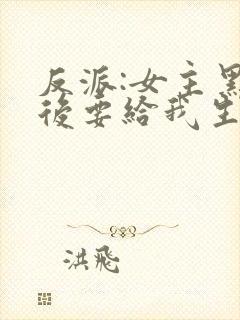 反派:女主黑
後要給我生
洪飛